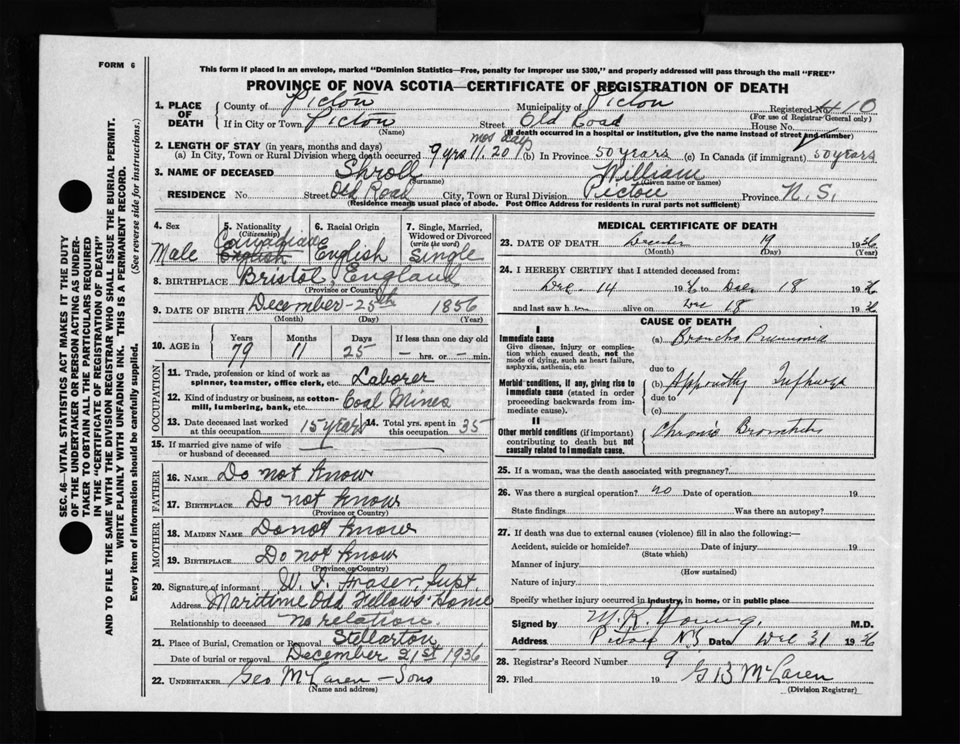 FORM 6
This form if placed in an envelope, marked "Dominion Statistics—Free, penalty for improper use $300," and properly addressed will pass through the mail "FREE"
PROVINCE OF NOVA SCOTIA—CERTIFICATE OF REGISTRATION OF DEATH
1. PLACE OF DEATH County of Picton Municipality of Picton Registered No. 10
(For use of Registrar General only)
If in City or Town Picton Street Old Road House No.
(Name) (If death occurred in a hospital or institution, give the name instead of street and number)
2. LENGTH OF STAY (in years, months and days) mos days
(a) In City, Town or Rural Division where death occurred 9 yrs 11. 20 (b) In Province 50 years (c) In Canada (if immigrant) 50 years
3. NAME OF DECEASED Shroll William
(Surname) (Given name or names)
RESIDENCE No. Street Old Road City, Town or Rural Division Picton Province N. S.
(Residence means usual place of abode. Post Office Address for residents in rural parts not sufficient)
4. Sex Male
5. Nationality (Citizenship) Canadian English
6. Racial Origin English
7. Single, Married, Widowed or Divorced (write the word) Single
8. BIRTHPLACE Bristol, England
(Province or Country)
9. DATE OF BIRTH December - 25th 1856
(Month) (Day) (Year)
10. AGE in Years 79 Months 11 Days 25 If less than one day old — hrs. or — min.
OCCUPATION
11. Trade, profession or kind of work as spinner, teamster, office clerk, etc. Laborer
12. Kind of industry or business, as cotton-mill, lumbering, bank, etc. Coal Mines
13. Date deceased last worked at this occupation 15 years
14. Total yrs. spent in this occupation 35
15. If married give name of wife or husband of deceased
FATHER
16. NAME Do not know
17. BIRTHPLACE Do not know
(Province or Country)
MOTHER
18. MAIDEN NAME Do not know
19. BIRTHPLACE Do not know
(Province or Country)
20. Signature of informant W. F. Fraser, Supt
Address Maritime Odd Fellows Home
Relationship to deceased no relation.
21. Place of Burial, Cremation or Removal Stellarton
Date of burial or removal December 21st 1936
22. UNDERTAKER Geo McLaren - Sons
(Name and address)
MEDICAL CERTIFICATE OF DEATH
23. DATE OF DEATH December 19 1936
(Month) (Day) (Year)
24. I HEREBY CERTIFY that I attended deceased from:
Dec. 14 1936 to Dec. 18 1936
and last saw him alive on Dec 18 1936
CAUSE OF DEATH
I
Immediate cause
Give disease, injury or complication which caused death, not the mode of dying, such as heart failure, asphyxia, asthenia, etc.
(a) Broncho Pneumonia
due to
Morbid conditions, if any, giving rise to immediate cause (stated in order proceeding backwards from immediate cause).
(b)
due to
(c)
II
Other morbid conditions (if important) contributing to death but not causally related to immediate cause.
Chronic Bronchitis
25. If a woman, was the death associated with pregnancy?
26. Was there a surgical operation? no Date of operation 19
State findings Was there an autopsy?
27. If death was due to external causes (violence) fill in also the following:—
Accident, suicide or homicide? Date of injury 19
(State which)
Manner of injury
(How sustained)
Nature of injury
Specify whether injury occurred in industry, in home, or in public place
Signed by Young, M.D.
Address Pictou NS Date Dec 31 1936
28. Registrar's Record Number 9
29. Filed 19 G B McLaren
(Division Registrar)
SEC. 46—VITAL STATISTICS ACT MAKES IT THE DUTY
OF THE UNDERTAKER OR PERSON ACTING AS UNDER-
TAKER TO OBTAIN ALL THE PARTICULARS REQUIRED
IN THE "CERTIFICATE OF REGISTRATION OF DEATH"
AND TO FILE THE SAME WITH THE DIVISION REGISTRAR WHO SHALL ISSUE THE BURIAL PERMIT.
WRITE PLAINLY WITH UNFADING INK. THIS IS A PERMANENT RECORD.
Every item of information should be carefully supplied. (See reverse side for instructions.)